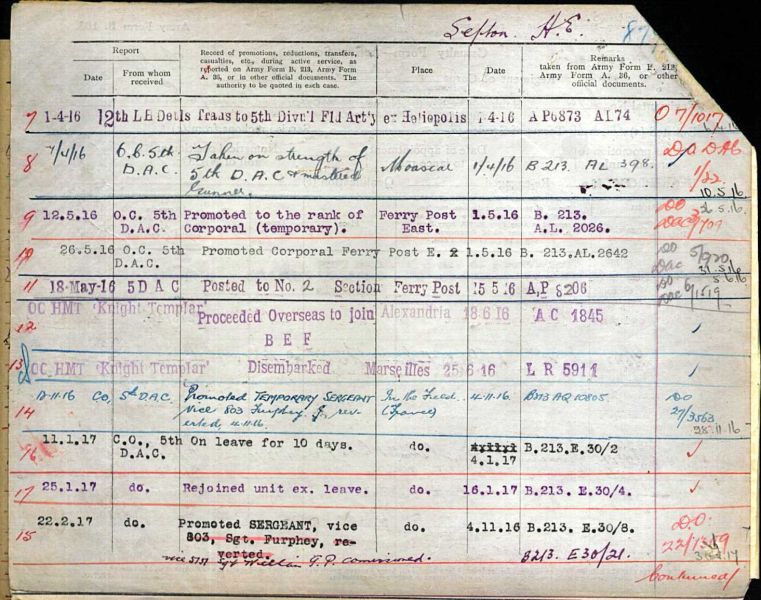 Sefton. H.E.
Report
Date
From whom received
Record of promotions, reductions, transfers, casualties, etc., during active service, as reported on Army Form B. 213, Army Form A. 36, or in other official documents. The authority to be quoted in each case.
Place
Date
Remarks
taken from Army Form B. 213, Army Form A. 36, or other official documents.
7 1-4-16 12th LH Details Trans to 5th Divn'l Fld Art'y ex Heliopolis 1-4-16 AP6873 AL74 O 7/1017
8 7/4/16 O.C. 5th D.A.C. Taken on strength of 5th D.A.C & mustered Gunner. Moascar 1/4/16 B213. AL 398. D.O. DAC 1/22 10.5.16
9 12.5.16 O.C. 5th D.A.C. Promoted to the rank of Corporal (temporary). Ferry Post East. 1.5.16 B. 213. A.L. 2026.
10 26.5.16 O.C. 5th D.A.C. Promoted Corporal Ferry Post E. 1.5.16 B. 213.AL.2642
11 18-May-16 5DAC Posted to No. 2 Section Ferry Post 15 5 16 A.P 8206
12 OC HMT 'Knight Templar' Proceeded Overseas to join BEF Alexandria 18 6 16 AC 1845
13 OC HMT 'Knight Templar' Disembarked Marseilles 25 6 16 LR 5911
14 CO, 5th D.A.C. Promoted TEMPORARY SERGEANT vice 803 Furphey J, reverted, 4.11.16. In the Field. (France) 4.11.16 B213 AQ10805. DO 27/3563 28.11.16
16 11.1.17 C.O., 5th D.A.C. On leave for 10 days. do. 4.1.17 B.213.E.30/2
17 25.1.17 do. Rejoined unit ex. leave. do. 16.1.17 B.213. E.30/4.
15 22.2.17 do. Promoted SERGEANT, vice 803, Sgt. Furphey, reverted. do. 4.11.16 B.213. E.30/8. D.O. 22/1389
vice 5151 Sgt William G.P. commissioned. B213. E30/21.
Continued/